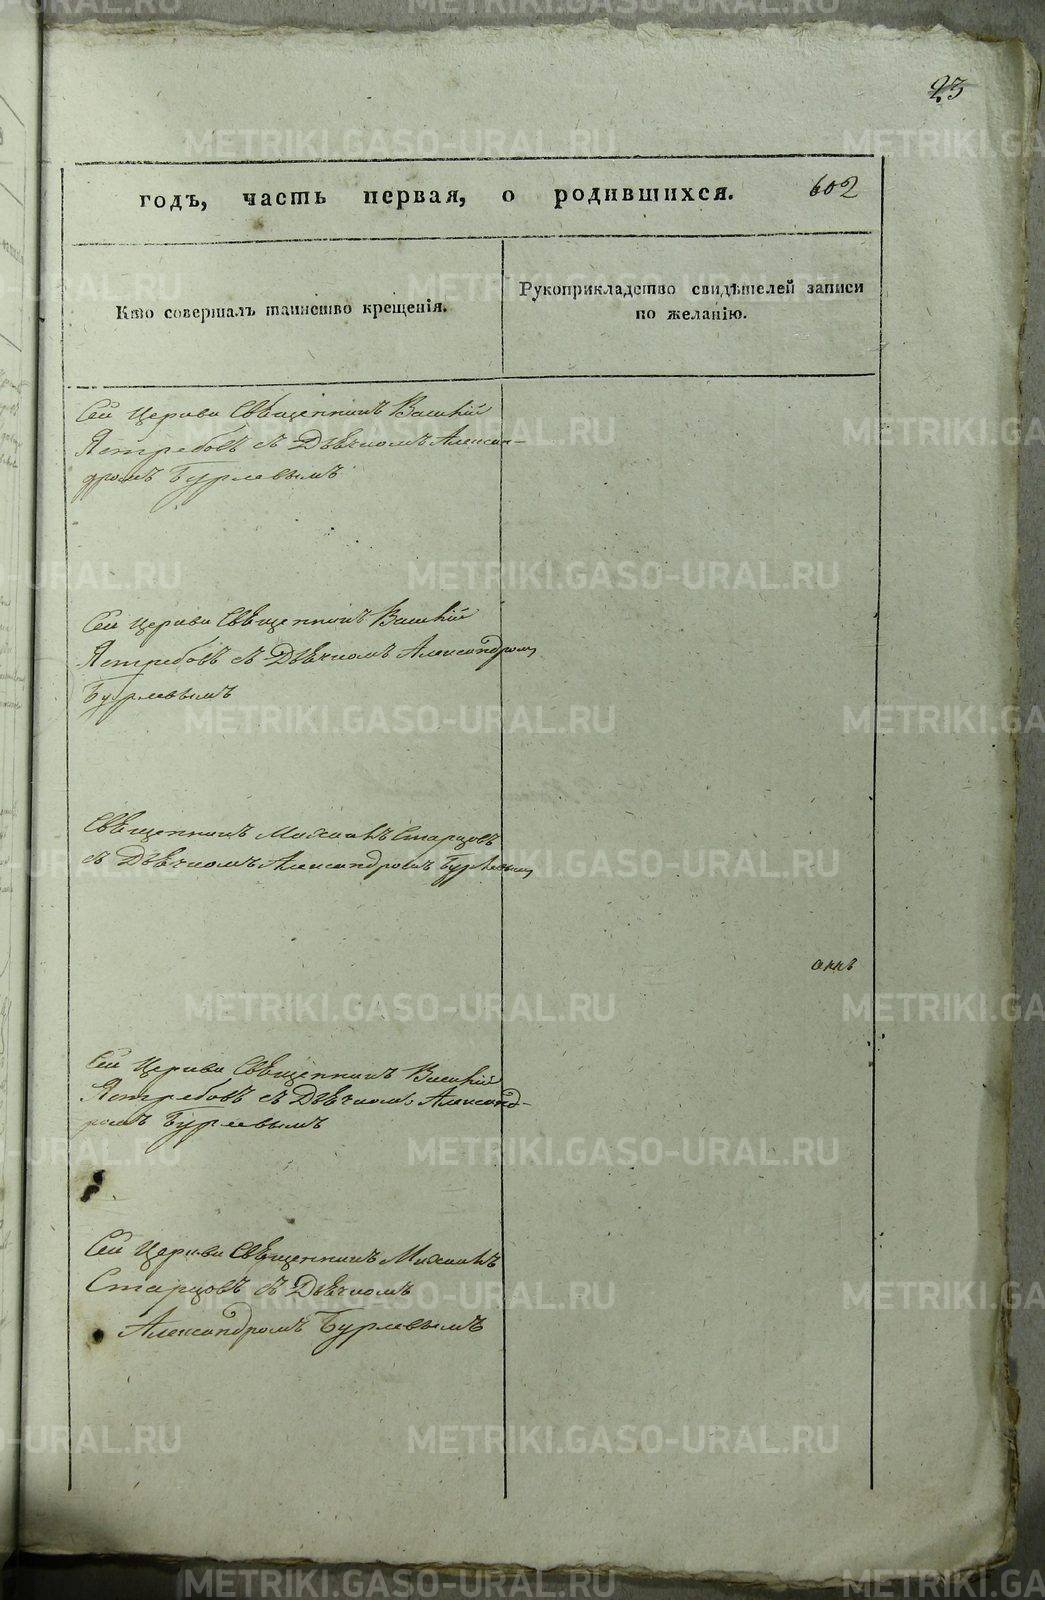 23
602
годъ, часть первая, о родившихся.
Кто совершалъ таинство крещенія.
Рукоприкладство свидѣтелей записи
по желанію.
Сей Церкви Священникъ Василій
Ястребовъ съ Дьячкомъ Алексан-
дромъ Бурлевымъ
Сей Церкви Священникъ Василій
Ястребовъ съ Дьячкомъ Александромъ
Бурлевымъ
Священникъ Михаилъ Старцовъ
съ Дьячкомъ Александромъ Бурлевымъ
Сей Церкви Священникъ Василій
Ястребовъ съ Дьячкомъ Александ-
ромъ Бурлевымъ
Сей Церкви Священникъ Михаилъ
Старцовъ съ Дьячкомъ
Александромъ Бурлевымъ
METRIKI.GASO-URAL.RU